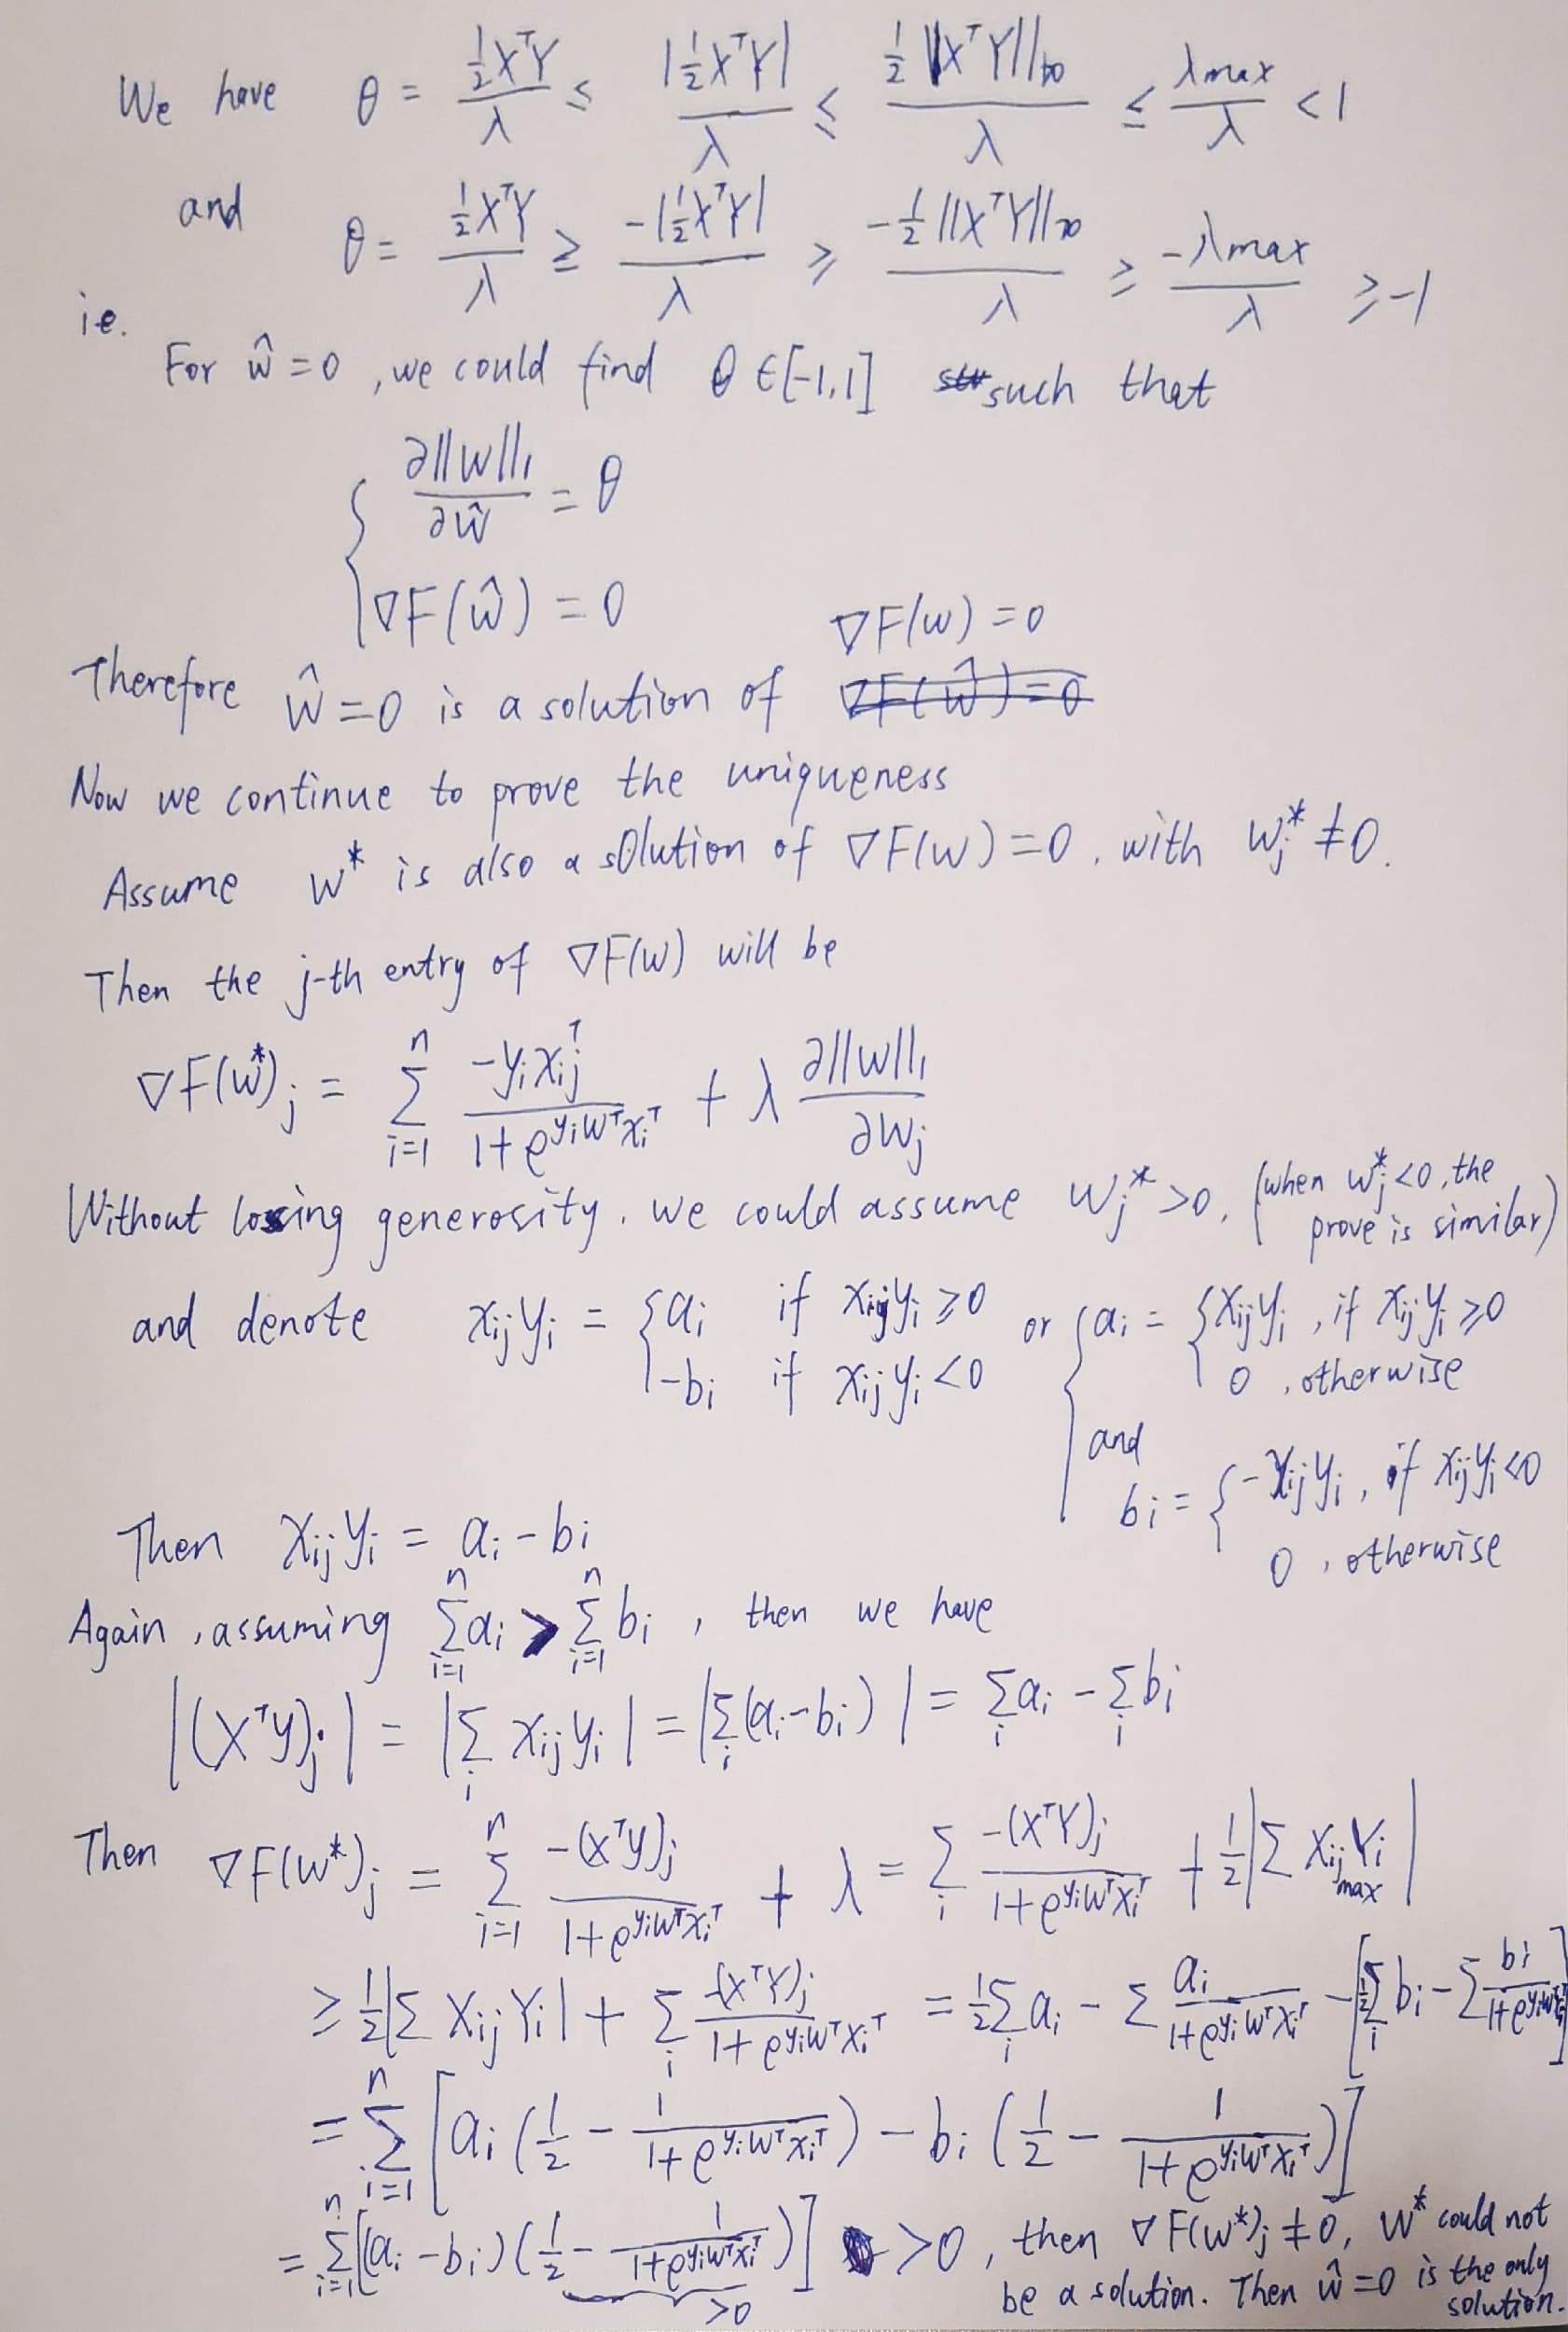 We have θ = ½XᵀY/λ ≤ |½XᵀY|/λ ≤ ½||XᵀY||∞/λ ≤ λmax/λ < 1
and θ = ½XᵀY/λ ≥ -|½XᵀY|/λ ≥ -½||XᵀY||∞/λ ≥ -λmax/λ ≥ -1
i.e.
For ŵ = 0, we could find θ ∈ [-1,1] such that
{ ∂||w||₁/∂ŵ = θ
∇F(ŵ) = 0
∇F(w) = 0
Therefore ŵ = 0 is a solution of ∇F(ŵ) = 0
Now we continue to prove the uniqueness
Assume w* is also a solution of ∇F(w) = 0, with wj* ≠ 0.
Then the j-th entry of ∇F(w) will be
∇F(w*)j = Σ_{i=1}^{n} -yixijᵀ/(1+e^{yiwᵀxiᵀ}) + λ ∂||w||₁/∂wj
Without losing generosity, we could assume wj* > 0, (when wj* < 0, the prove is similar)
and denote xijyi = { ai if xijyi ≥ 0 or { ai = { xijyi, if xijyi ≥ 0
-bi if xijyi < 0 0, otherwise
and
bi = { -xijyi, if xijyi < 0
0, otherwise
Then xijyi = ai - bi
Again, assuming Σ_{i=1}^{n} ai > Σ_{i=1}^{n} bi, then we have
|(XᵀY)j| = |Σ_i xijyi| = |Σ_i (ai-bi)| = Σ_i ai - Σ_i bi
Then ∇F(w*)j = Σ_{i=1}^{n} -(XᵀY)j/(1+e^{yiwᵀxiᵀ}) + λ = Σ_i -(XᵀY)j/(1+e^{yiwᵀxiᵀ}) + ½|Σ Xij Yi max|
≥ ½|Σ XijYi| + Σ_i -(XᵀY)j/(1+e^{yiwᵀxiᵀ}) = ½Σ_i ai - Σ ai/(1+e^{yiwᵀxiᵀ}) - [½Σ_i bi - Σ bi/(1+e^{yiwᵀxiᵀ})]
= Σ_{i=1}^{n} [ai(½ - 1/(1+e^{yiwᵀxiᵀ})) - bi(½ - 1/(1+e^{yiwᵀxiᵀ}))]
= Σ_{i=1}^{n} [(ai-bi)(½ - 1/(1+e^{yiwᵀxiᵀ}))] > 0, then ∇F(w*)j ≠ 0, w* could not
>0
be a solution. Then ŵ = 0 is the only
solution.